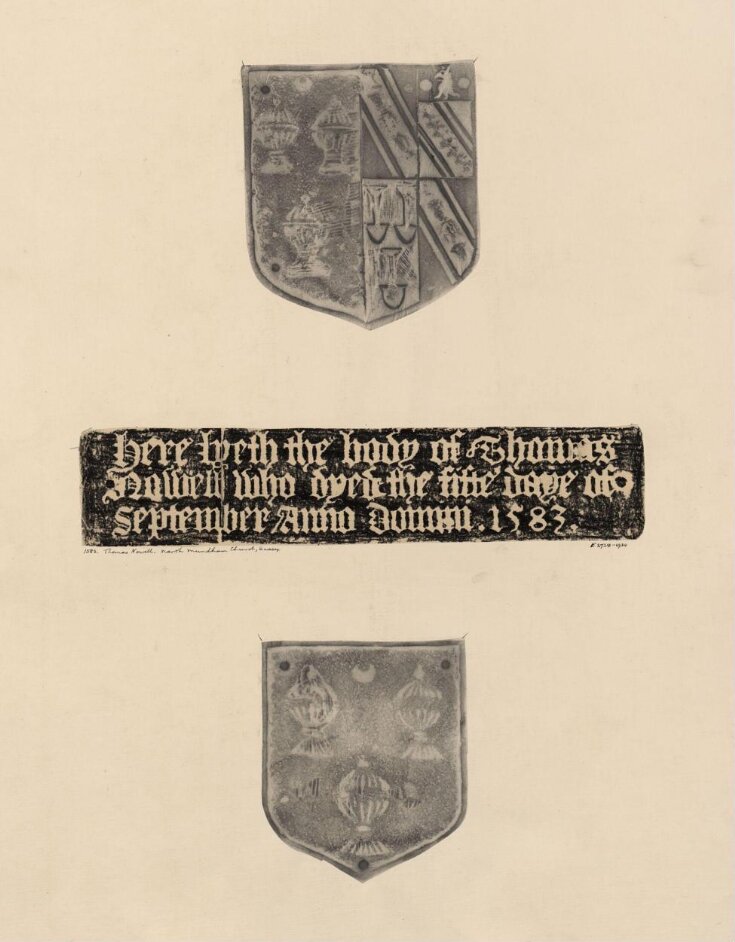 Here lyeth the body of Thomas
Nowell who dyed the fifte daye of
September Anno Domini. 1583.
1583. Thomas Nowell. North Mundham Church, Sussex